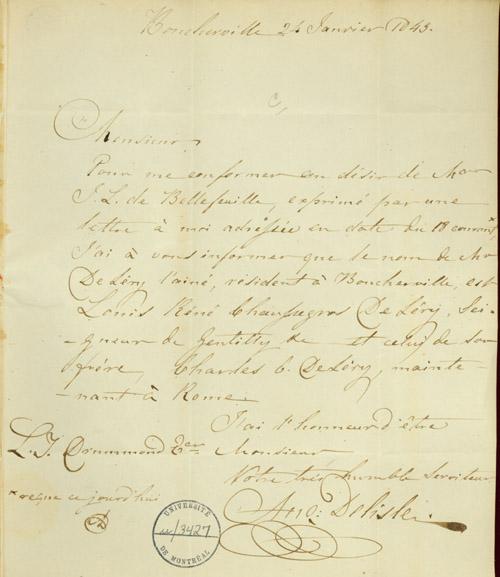 Boucherville 24 Janvier 1843.
Monsieur,
Pour me conformer au désir de Mr
J. L. de Bellefeuille, exprimé par une
lettre à moi adressée en date du 18 courant*
J'ai à vous informer que le nom de Mr
DeLéry l'ainé, résident à Boucherville, est
Louis René Chaussegros DeLéry, Sei-
-gneur de Gentilly &c et celui de son
frère, Charles C. DeLéry, mainte-
-nant à Rome.
J'ai l'honneur d'être
L. T. Drummond Ecr Monsieur
Votre très humble Serviteur
* reçue ce jourd'hui
Delisle.
UNIVERSITÉ
/3427
DE MONTRÉAL